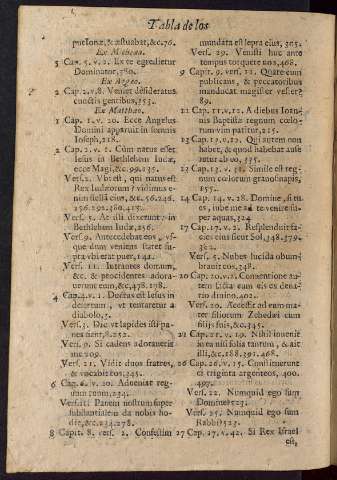 Tabla de los
put Ionæ, & æstuabat, &c. 76.
Ex Micheas.
5 Cap. 5. v. 2. Ex te egredietur
Dominator, 380.
Ex Aggeo.
2 Cap. 2. v. 8. Veniet desideratus
cunctis gentibus, 353.
Ex Mattheo.
1 Cap. 1. v. 20. Ecce Angelus
Domini apparuit in somnis
Ioseph, 218.
2 Cap. 2. v. 1. Cùm natus esset
Iesus in Bethlehem Iudæ,
ecce Magi, &c. 99. 235.
Vers. 2. Vbi est, qui natus est
Rex Iudæorum? vidimus e-
nim stellã eius, &c. 56. 246.
256. 292. 380. 415.
Vers. 5. At illi dixerunt: In
Bethlehem Iudæ, 256.
Vers. 9. Antecedebat eos, vs-
que dum veniens staret su-
pra vbi erat puer, 142.
Vers. 11. Intrantes domum,
&c. & procidentes adora-
uerunt eum, &c. 478. 178.
4 Cap. 4. v. 1. Ductus est Iesus in
desertum, vt tentaretur à
diabolo, 5.
Vers. 3. Dic vt lapides isti pa-
nes fiant, 8. 252.
Vers. 9. Si cadens adoraueris
me 209.
Vers. 21. Vidit duos fratres,
& vocabit eos, 345.
6 Cap. 6. v. 10. Adueniat reg-
num tuum, 234.
Vers. 11. Panem nostrum super
substantialem da nobis ho-
die, &c. 234. 278.
8 Capit. 8. vers. 2. Confestim
mundata est lepra eius, 305.
Vers. 29. Venisti huc ante
tempus torquere nos, 468.
9 Capit. 9. vers. 11. Quare cum
publicanis, & peccatoribus
manducat magister vester?
89.
11 Cap. 11. v. 12. A diebus Ioan-
nis Baptistæ regnum cœlo-
rum vim patitur, 215.
13 Cap. 13. v. 12. Qui autem non
habet, & quod habebat aufe
retur ab eo, 335.
Cap. 13. v. 31. Simile est reg-
num cœlorum grano sinapis,
155.
14 Cap. 14. v. 28. Domine, si tu
es, iube me ad te venire su-
per aquas, 324.
17 Cap. 17. v. 2. Resplenduit fa-
cies eius sicut Sol, 348. 379.
382.
Vers. 5. Nubes lucida obum-
brauit eos, 348.
20 Cap. 20. v. 2. Conuentione au-
tem facta cum eis ex dena-
rio diurno, 402.
Vers. 20. Accessit ad eum ma-
ter filiorum Zebedæi cum
filijs suis, &c. 345.
21 Cap. 21. v. 19. Nihil inuenit
in ea nisi folia tantum, & ait
illi, &c. 188. 391. 468.
26 Cap. 26. v. 15. Constituerunt
ei triginta argenteos, 400.
497.
Vers. 22. Numquid ego sum
Domine? 523.
Vers. 25. Numquid ego sum
Rabbi? 523.
27 Cap. 27. v. 42. Si Rex Israel
est,